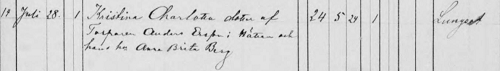 19 Juli 28. 1 Kristina Charlotta dotter af 24 5 24 1 Lungsot
Torparen Anders Ersson i och
hans h. Anna Brita Berg